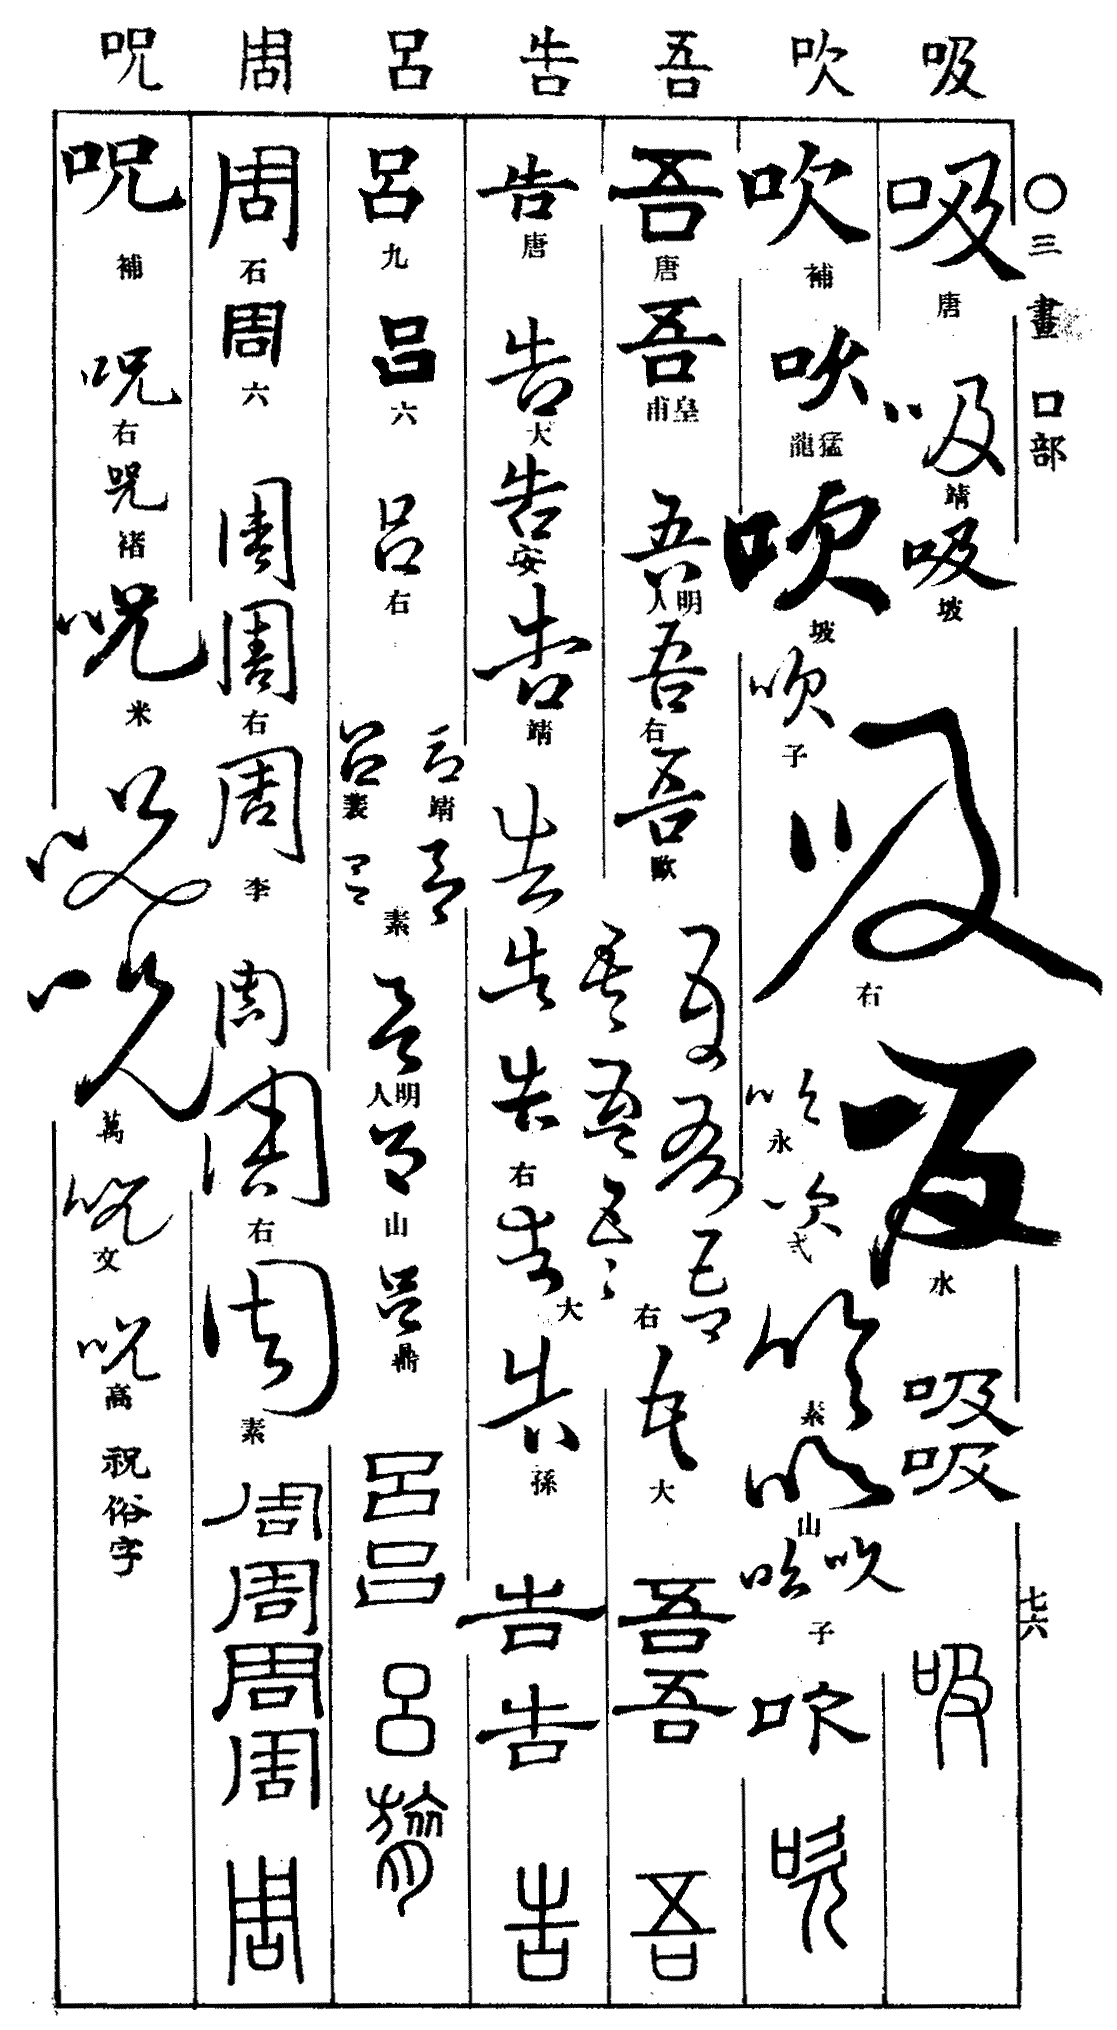 〇三畫 口部
七六
吸 吹 吾 告 呂 周 呪
吸 唐
吸 靖
吸 坡
吸 右
吸 水
吸
吸
吸
吹 補
吹 猛龍
吹 坡
吹 子
吹 永
吹 弍
吹 素
吹 山
吹 吹 子
吹
吹
吾 唐
吾 皇甫
吾 明人
吾 右
吾 歐
吾 吾 吾 吾 吾 吾 右
吾 大
吾
吾
吾
告 唐
告 大
告 安
告 靖
告
告
告 右
告 大
告 孫
告
告
告
呂 九
呂 六
呂 右
呂 靖
呂 裴
呂 呂 素
呂 明人
呂 山
呂 鼎
呂
呂
呂
周 石
周 六
周
周 右
周 李
周
周 右
周 素
周
周
周
周
周
呪 補
呪 右
呪 褚
呪 米
呪
呪 萬
呪 文
呪 高
祝俗字